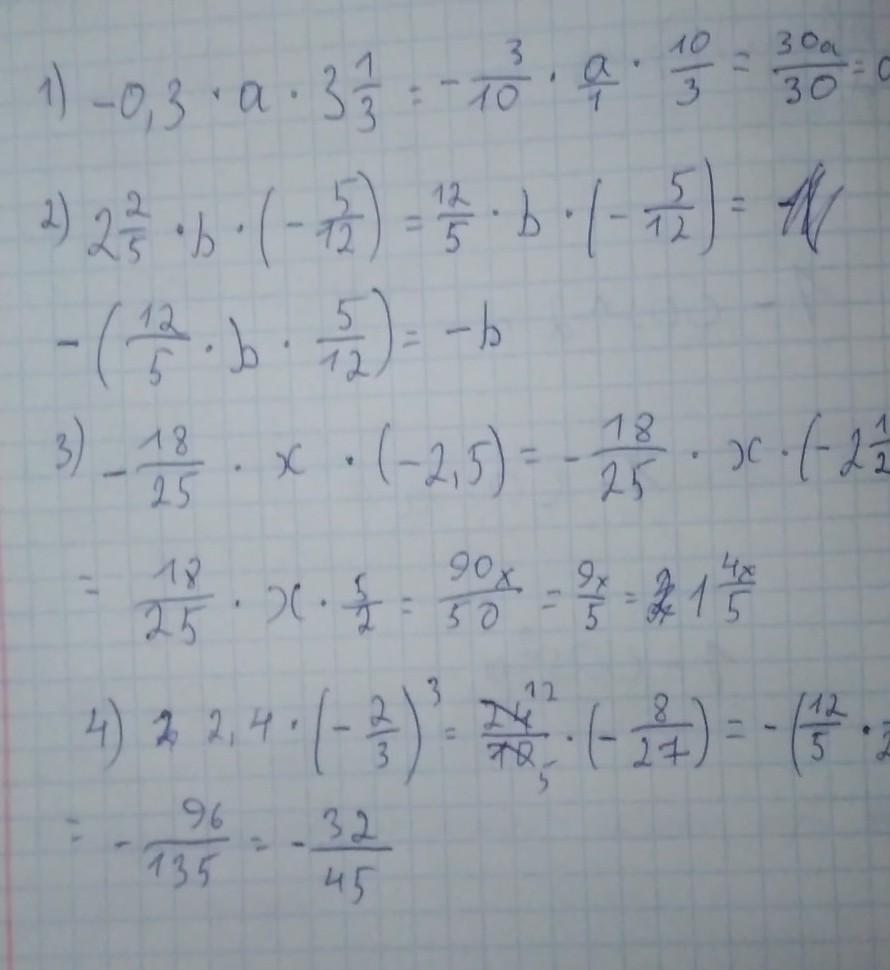 1) -0,3 · a · 3 1/3 = - 3/10 · a/1 · 10/3 = 30a/30 =
2) 2 2/5 · b · (- 5/12) = 12/5 · b · (- 5/12) =
- (12/5 · b · 5/12) = -b
3) - 18/25 · x · (-2,5) = - 18/25 · x · (-2 1/2
= 18/25 · x · 5/2 = 90x/50 = 9x/5 = 1 4x/5
4) 2,4 · (- 2/3)^3 = 24 12/10 5 · (- 8/27) = - (12/5 ·
= - 96/135 = - 32/45